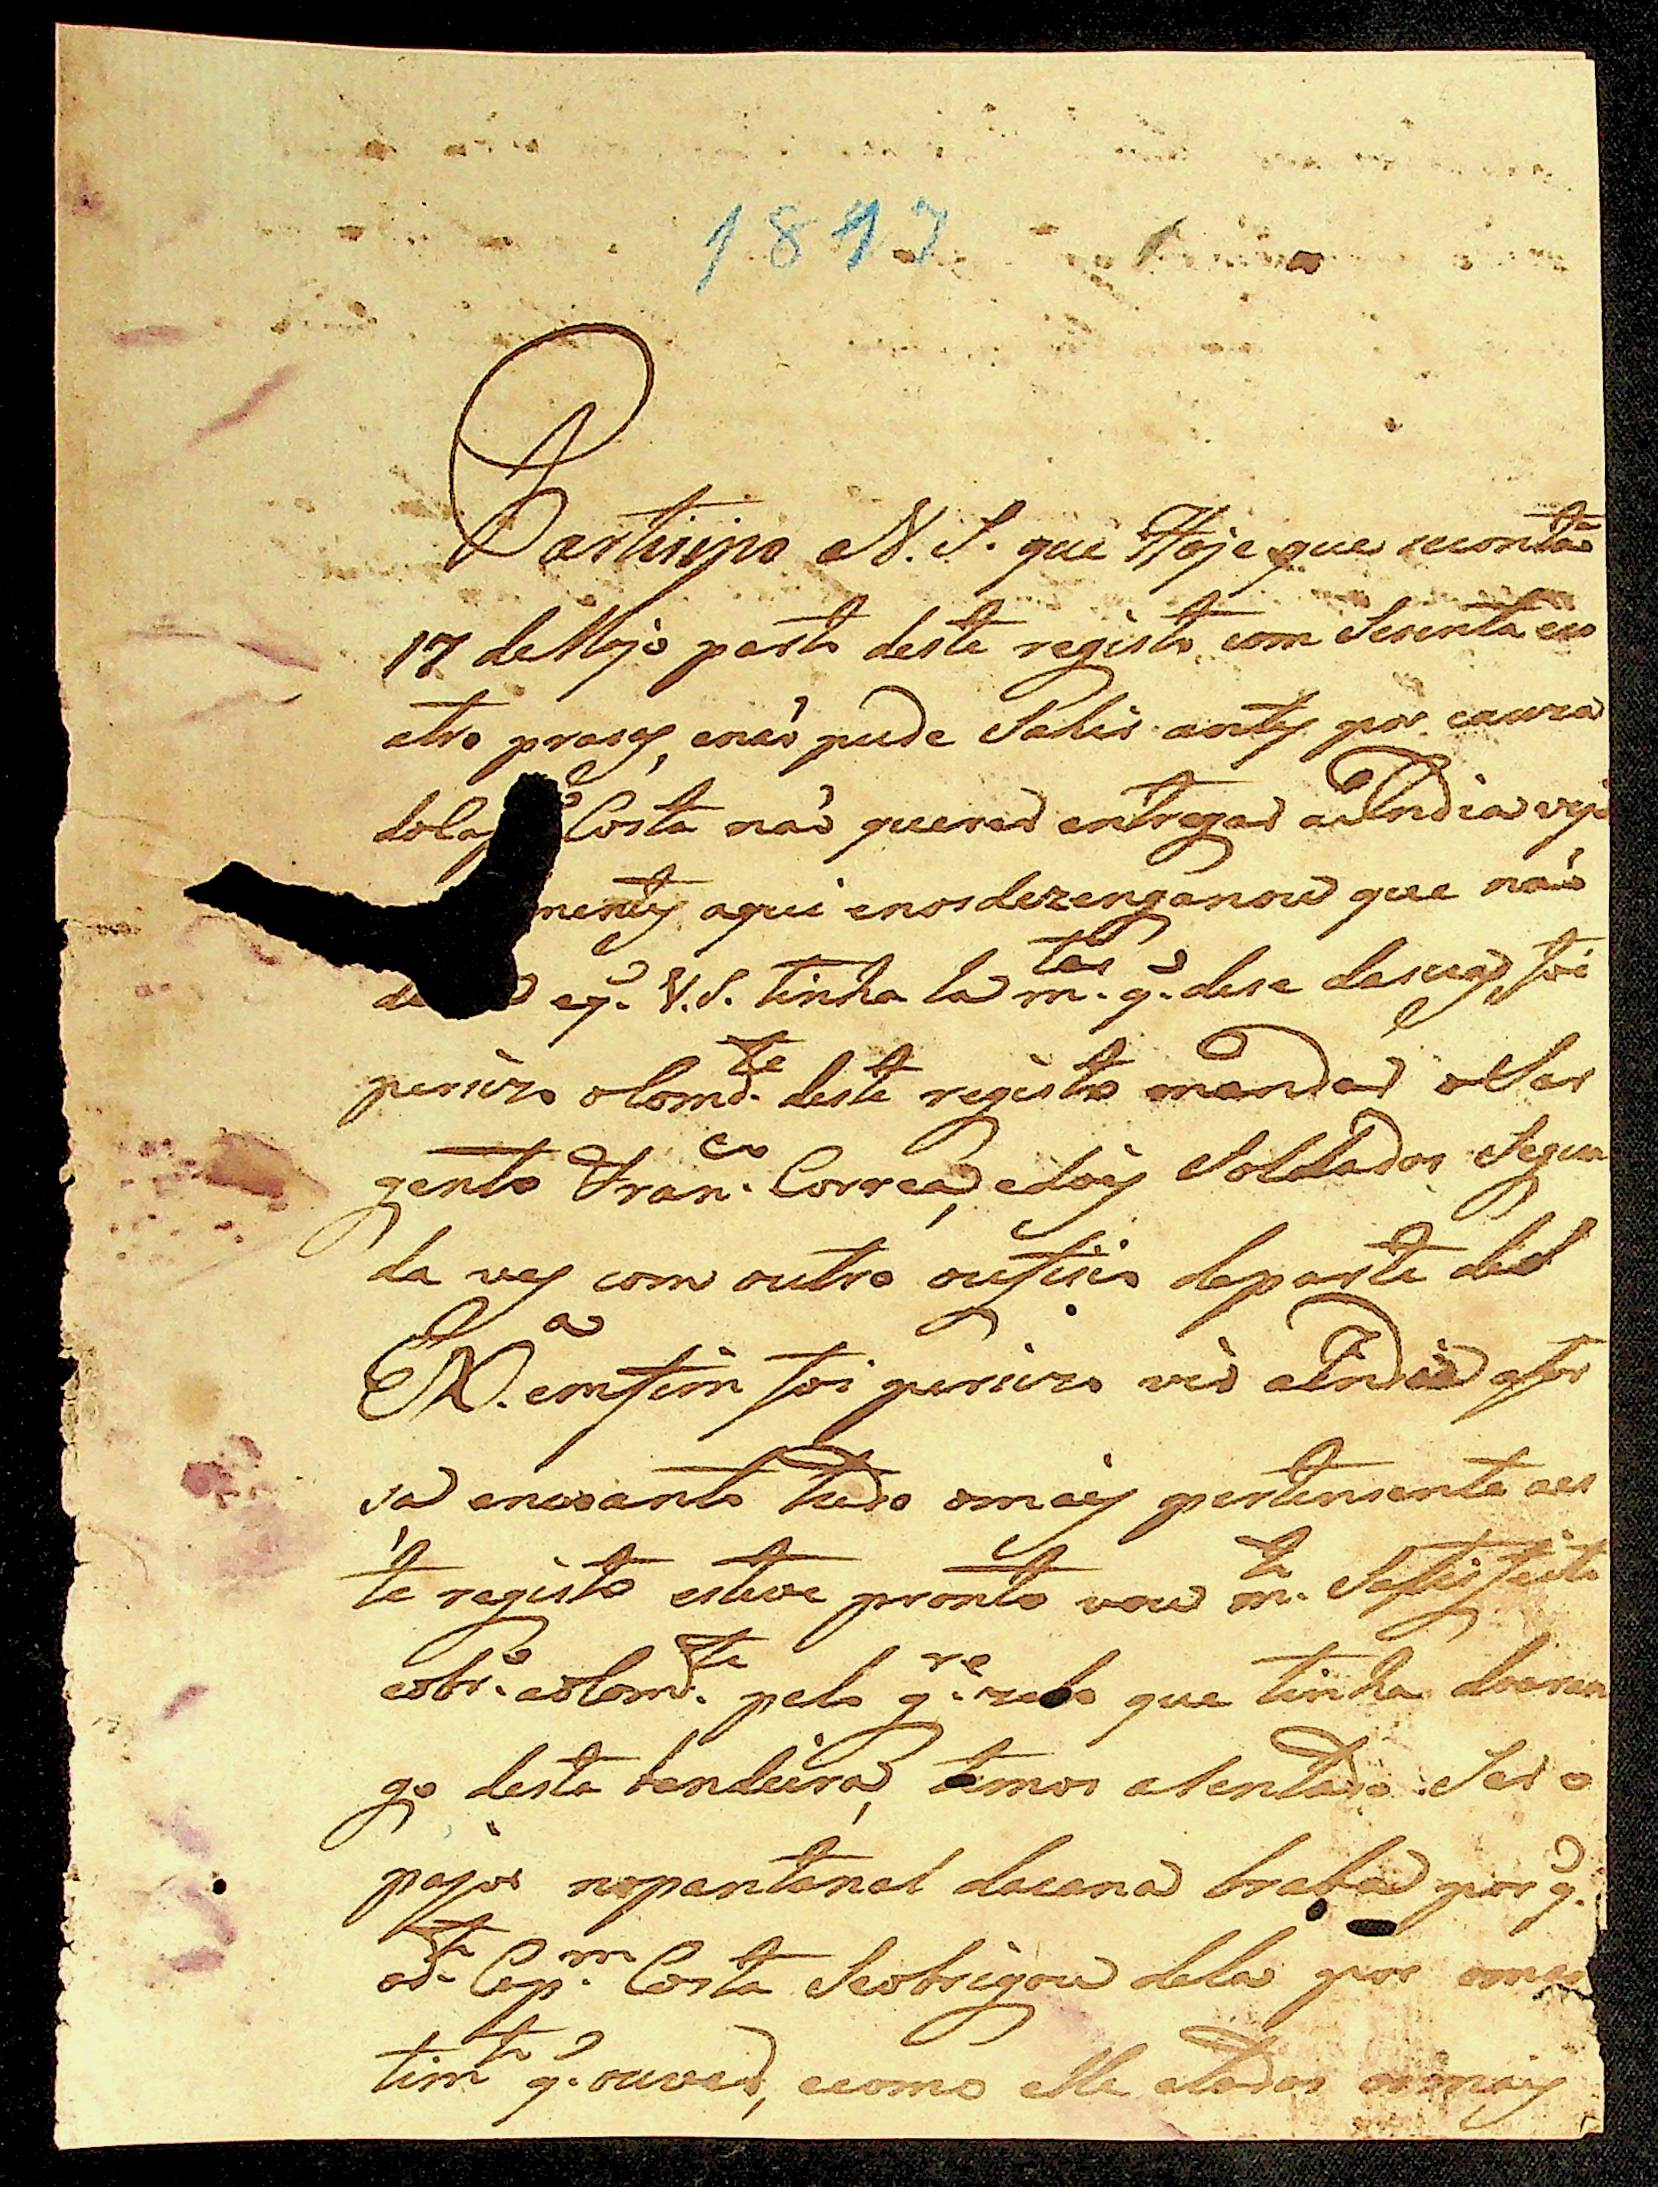 1847
Partisipo a V. S. que Hoje que secontaõ
17 de Majo parto deste registo com Sesenta eco
atro prasas, enaõ pude Sahir antes por cauza
Costa naõ querer entregar a India veja
mentes aqui enos dezenganou que naõ
eq.^e V. S. tinha la m.^tas q.^e dese desuas, foi
persizo oComd.^te deste registo mandar oSar
gento Fran.^co Correa, edois Soldados Segun
da ves com outro oufisio departe de
Ex.^a emfim foi persizo vir aIndia afor
sa encoanto tudo omais pertensente aes
te registo esteve pronto vou m.^to Satisfeito
eobr.^o aoComd.^te pelo g.^re zelo que tinha doaran
go desta bandeira, temos asentado Ser o
pajor nopantanal dacana braba por q.^e
od.^to Cap.^m Costa Seobrigou dela por oman
tim.^to q.^e ouver, ecomo elle etodos osmais